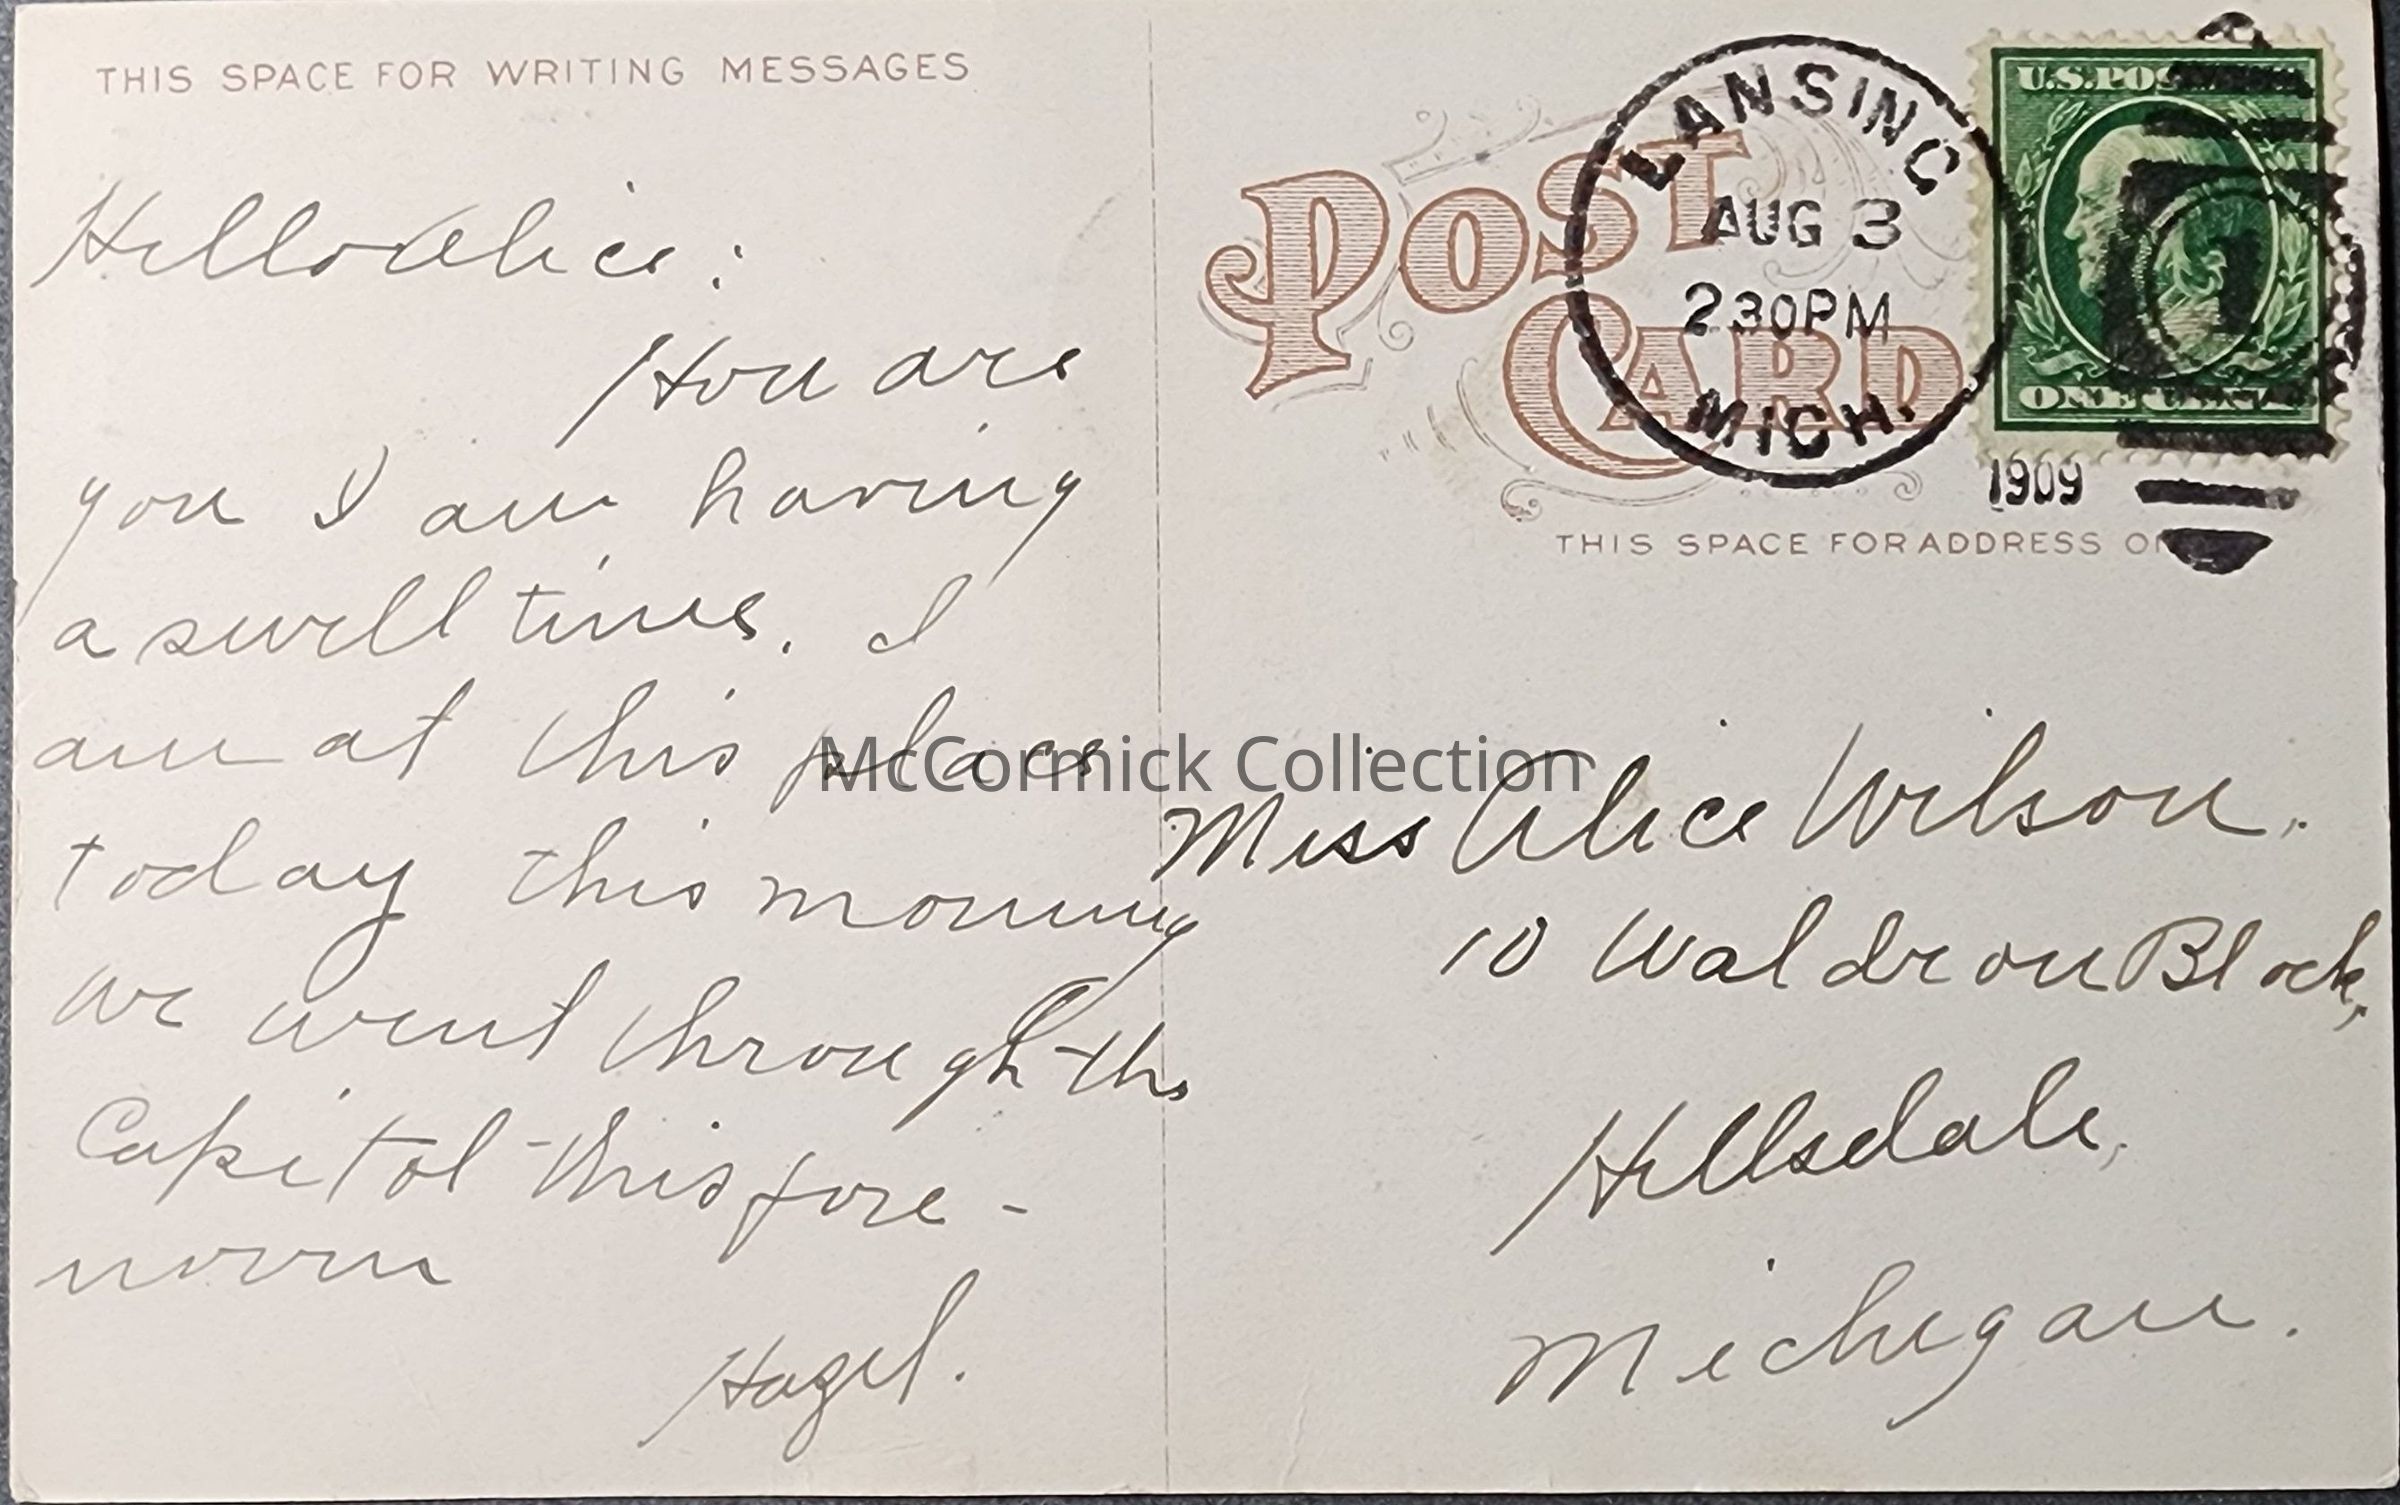 THIS SPACE FOR WRITING MESSAGES
Hello Alice:
How are
you I am having
a swell time. I
am at this place
today this morning
we went through the
Capitol this fore-
noon
Hazel.
POST
CARD
LANSING
AUG 3
230PM
MICH.
1909
U.S.POS
ONE CENT
1
THIS SPACE FOR ADDRESS ON
Miss Alice Wilson.
10 Waldron Block,
Hillsdale,
Michigan.
McCormick Collection